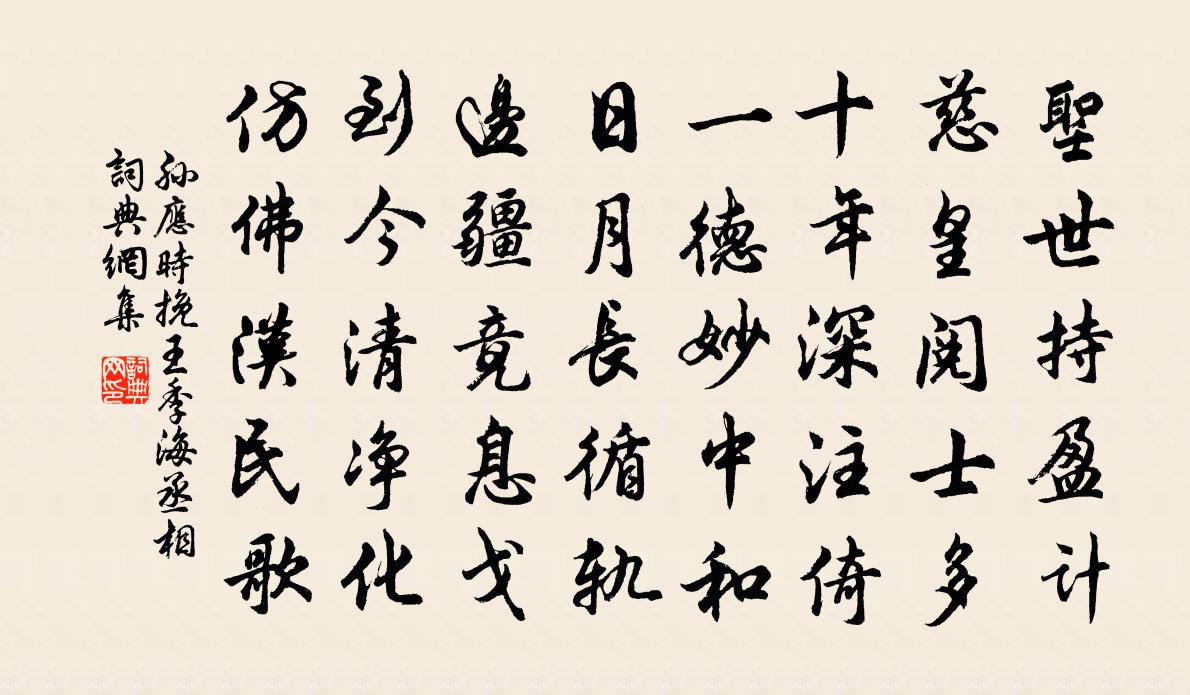 聖世持盈計
慈皇閱士多
十年深注倚
一德妙中和
日月長循軌
邊疆竟息戈
到今清净化
仿佛漢民歌
孫應時挽王季海丞相
詞典網集
詞典网印